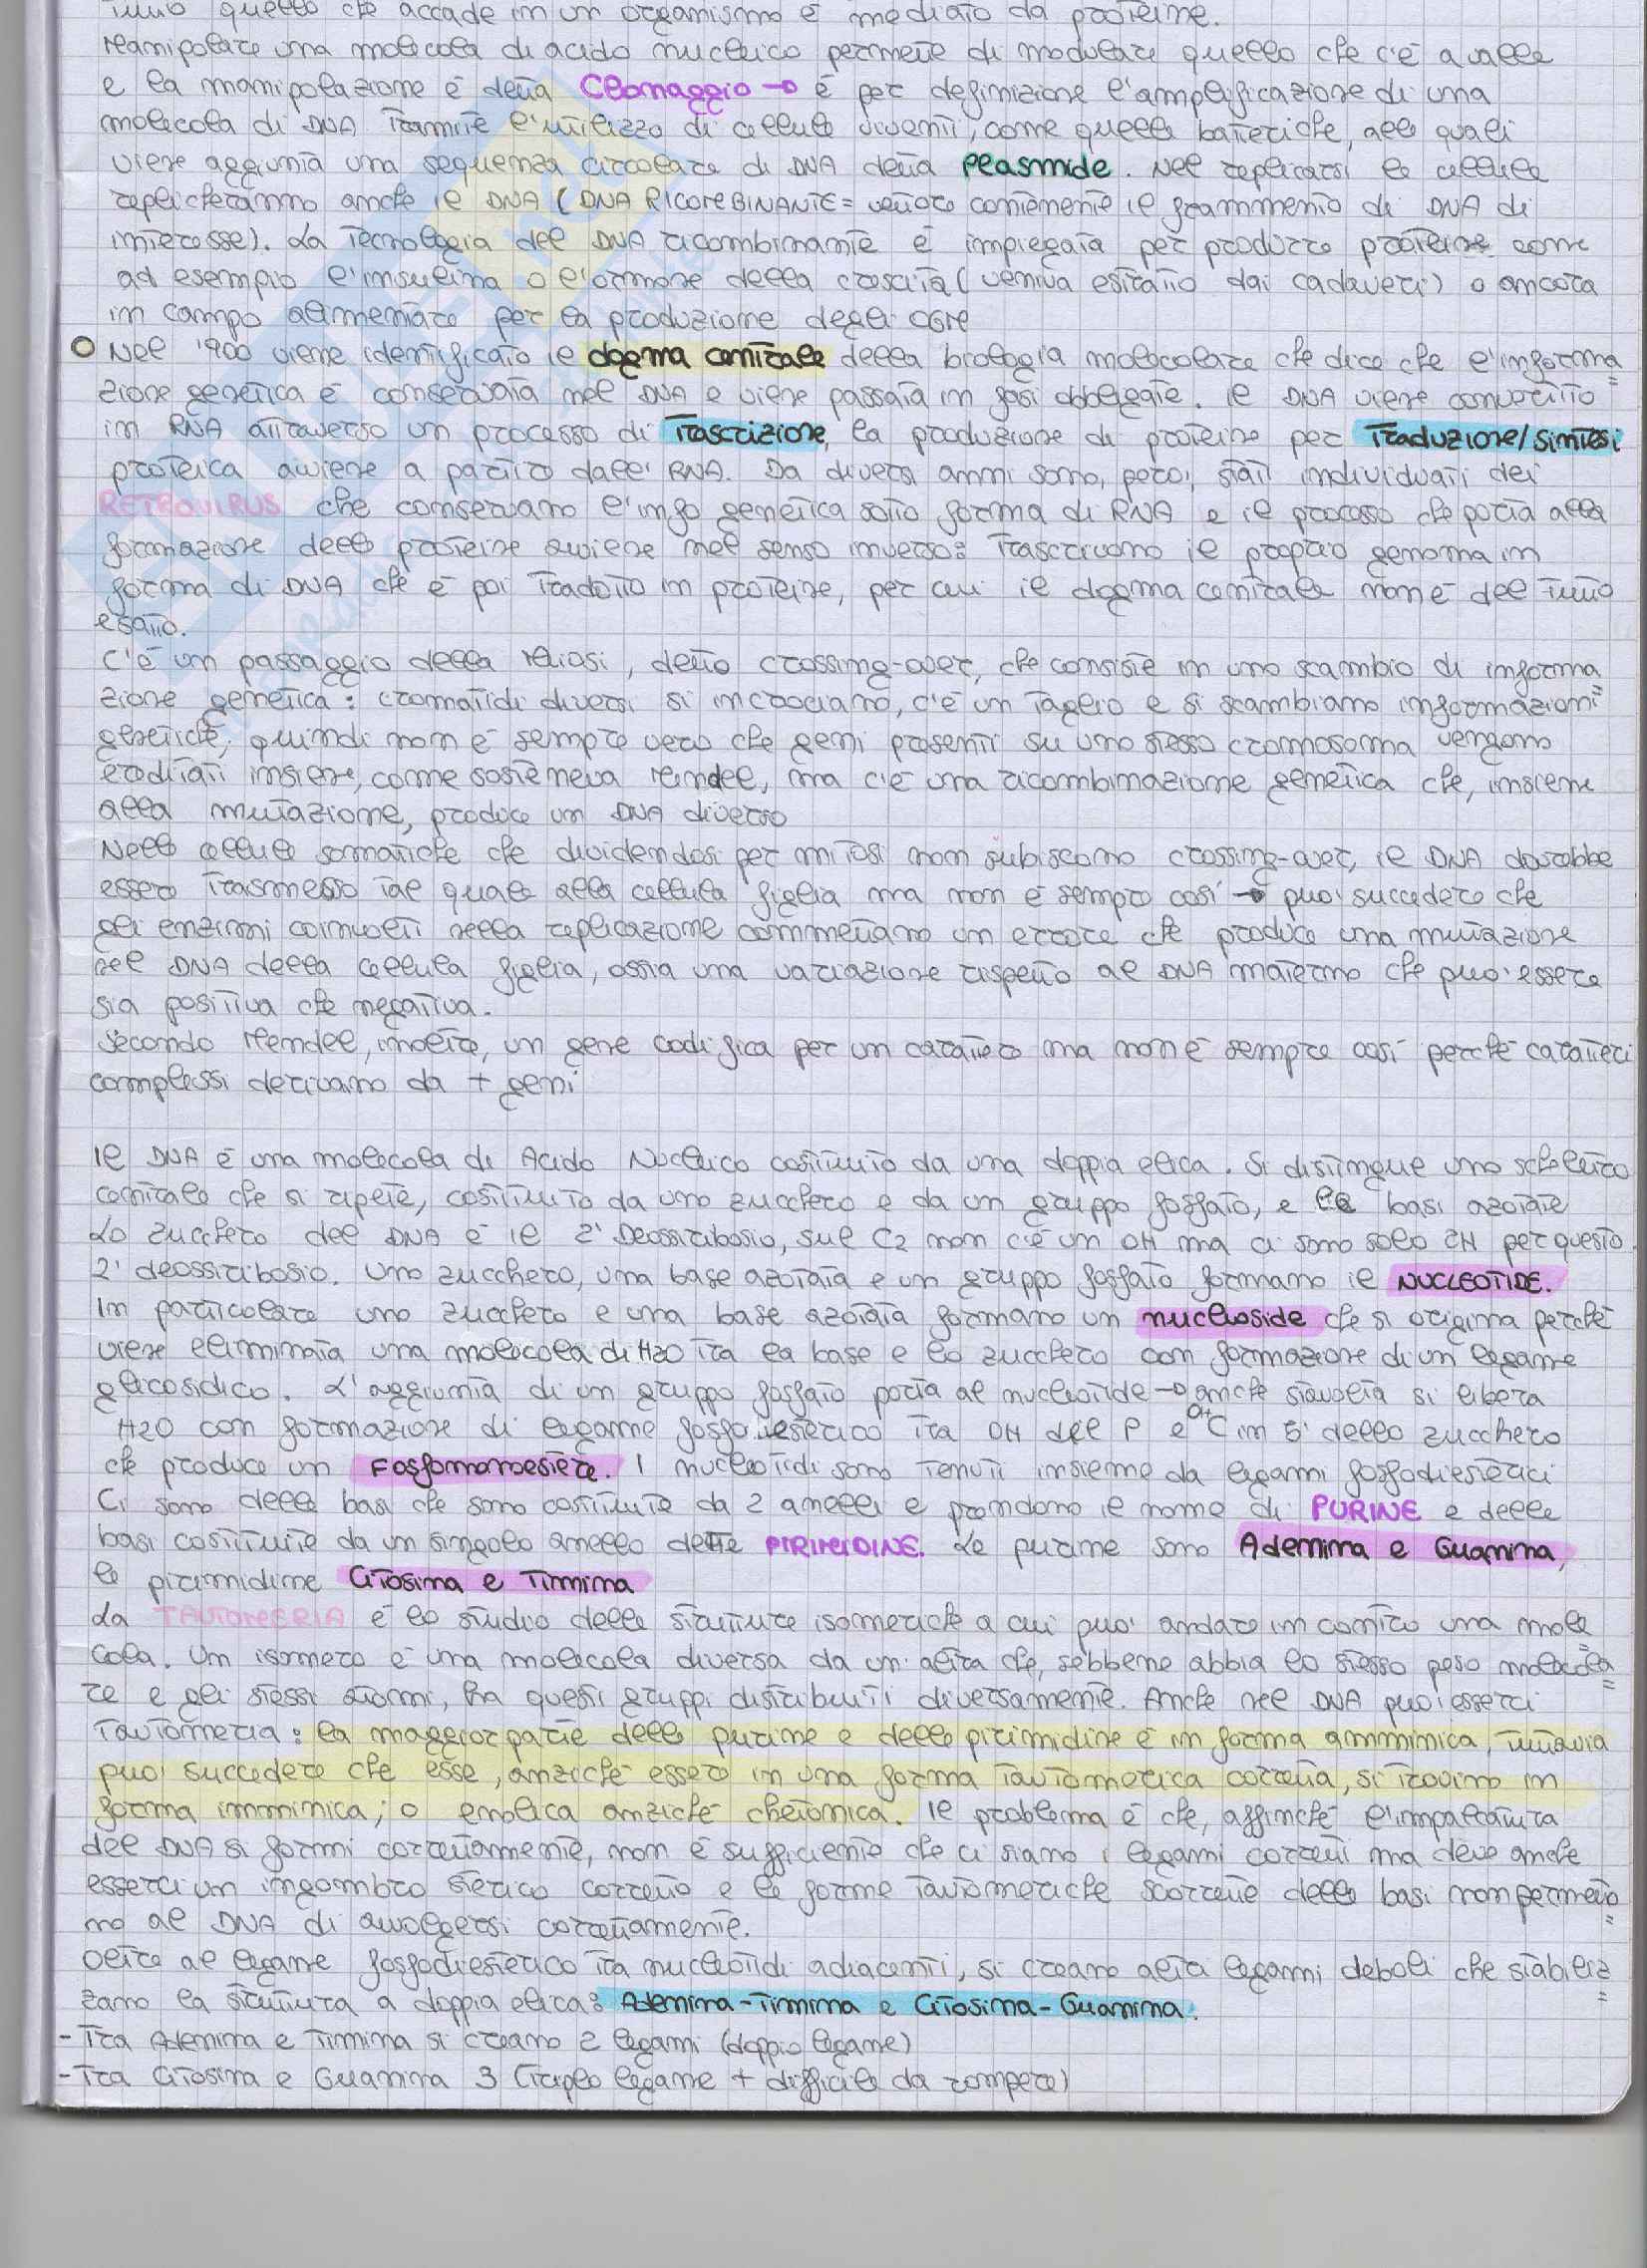 tutto quello che accade in un organismo è mediato da proteine.
Manipolare una molecola di acido nucleico permette di modulare quello che c'è a valle
e la manipolazione è detta Clonaggio → è per definizione l'amplificazione di una
molecola di DNA tramite l'utilizzo di cellule viventi, come quelle batteriche, alle quali
viene aggiunta una sequenza circolare di DNA detta Plasmide. Nel replicarsi le cellule
replicheranno anche il DNA (DNA RICOMBINANTE = vettore contenente il frammento di DNA di
interesse). La tecnologia del DNA ricombinante è impiegata per produrre proteine come
ad esempio l'insulina o l'ormone della crescita (veniva estratto dai cadaveri) o ancora
in campo alimentare per la produzione degli OGM
Nel '900 viene identificato il dogma centrale della biologia molecolare che dice che l'informa
zione genetica è conservata nel DNA e viene passata in fasi obbligate. Il DNA viene convertito
in RNA attraverso un processo di Trascrizione, la produzione di proteine per Traduzione/Sintesi
proteica avviene a partire dall'RNA. Da diversi anni sono, però, stati individuati dei
RETROVIRUS che conservano l'info genetica sotto forma di RNA e il processo che porta alla
formazione delle proteine avviene nel senso inverso: trascrivono il proprio genoma in
forma di DNA che è poi tradotto in proteine, per cui il dogma centrale non è del tutto
esatto.
C'è un passaggio della Meiosi, detto crossing-over, che consiste in uno scambio di informa
zione genetica: cromatidi diversi si incrociano, c'è un taglio e si scambiano informazioni
genetiche, quindi non è sempre vero che geni presenti su uno stesso cromosoma vengono
ereditati insieme, come sosteneva Mendel, ma c'è una ricombinazione genetica che, insieme
alla mutazione, produce un DNA diverso
Nelle cellule somatiche che dividendosi per mitosi non subiscono crossing-over, il DNA dovrebbe
essere trasmesso tale quale alla cellula figlia ma non è sempre così → può succedere che
gli enzimi coinvolti nella replicazione commettano un errore che produce una mutazione
nel DNA della cellula figlia, ossia una variazione rispetto al DNA materno che può essere
sia positiva che negativa.
Secondo Mendel, inoltre, un gene codifica per un carattere ma non è sempre così perché caratteri
complessi derivano da + geni
Il DNA è una molecola di Acido Nucleico costituito da una doppia elica. Si distingue uno scheletro
centrale che si ripete, costituito da uno zucchero e da un gruppo fosfato, e le basi azotate
Lo zucchero del DNA è il 2' Deossiribosio, sul C2 non c'è un OH ma ci sono solo 2H per questo
2' deossiribosio. Uno zucchero, una base azotata e un gruppo fosfato formano il NUCLEOTIDE.
In particolare uno zucchero e una base azotata formano un nucleoside che si origina perché
viene eliminata una molecola di H2O tra la base e lo zucchero con formazione di un legame
glicosidico. L'aggiunta di un gruppo fosfato porta al nucleotide → anche stavolta si libera
H2O con formazione di legame fosfodiesterico tra OH del P e OH C in 5' dello zucchero
che produce un Fosfomonoestere. I nucleotidi sono tenuti insieme da legami fosfodiesterici
Ci sono delle basi che sono costituite da 2 anelli e prendono il nome di PURINE e delle
basi costituite da un singolo anello dette PIRIMIDINE. Le purine sono Adenina e Guanina,
le pirimidine Citosina e Timina
La TAUTOMERIA è lo studio delle strutture isomeriche a cui può andare in contro una mole
cola. Un isomero è una molecola diversa da un'altra che, sebbene abbia lo stesso peso molecola
re e gli stessi atomi, ha questi gruppi distribuiti diversamente. Anche nel DNA può esserci
tautomeria: la maggior parte delle purine e delle pirimidine è in forma amminica, tuttavia
può succedere che esse, anziché essere in una forma tautomerica corretta, si trovino in
forma imminica; o enolica anziché chetonica. Il problema è che, affinché l'impalcatura
del DNA si formi correttamente, non è sufficiente che ci siano i legami corretti ma deve anche
esserci un ingombro sterico corretto e le forme tautomeriche scorrette delle basi non permetto
no al DNA di avvolgersi correttamente.
Oltre al legame fosfodiesterico tra nucleotidi adiacenti, si creano altri legami deboli che stabiliz
zano la struttura a doppia elica: Adenina-Timina e Citosina-Guanina.
- Tra Adenina e Timina si creano 2 legami (doppio legame)
- Tra Citosina e Guanina 3 (triplo legame + difficile da rompere)